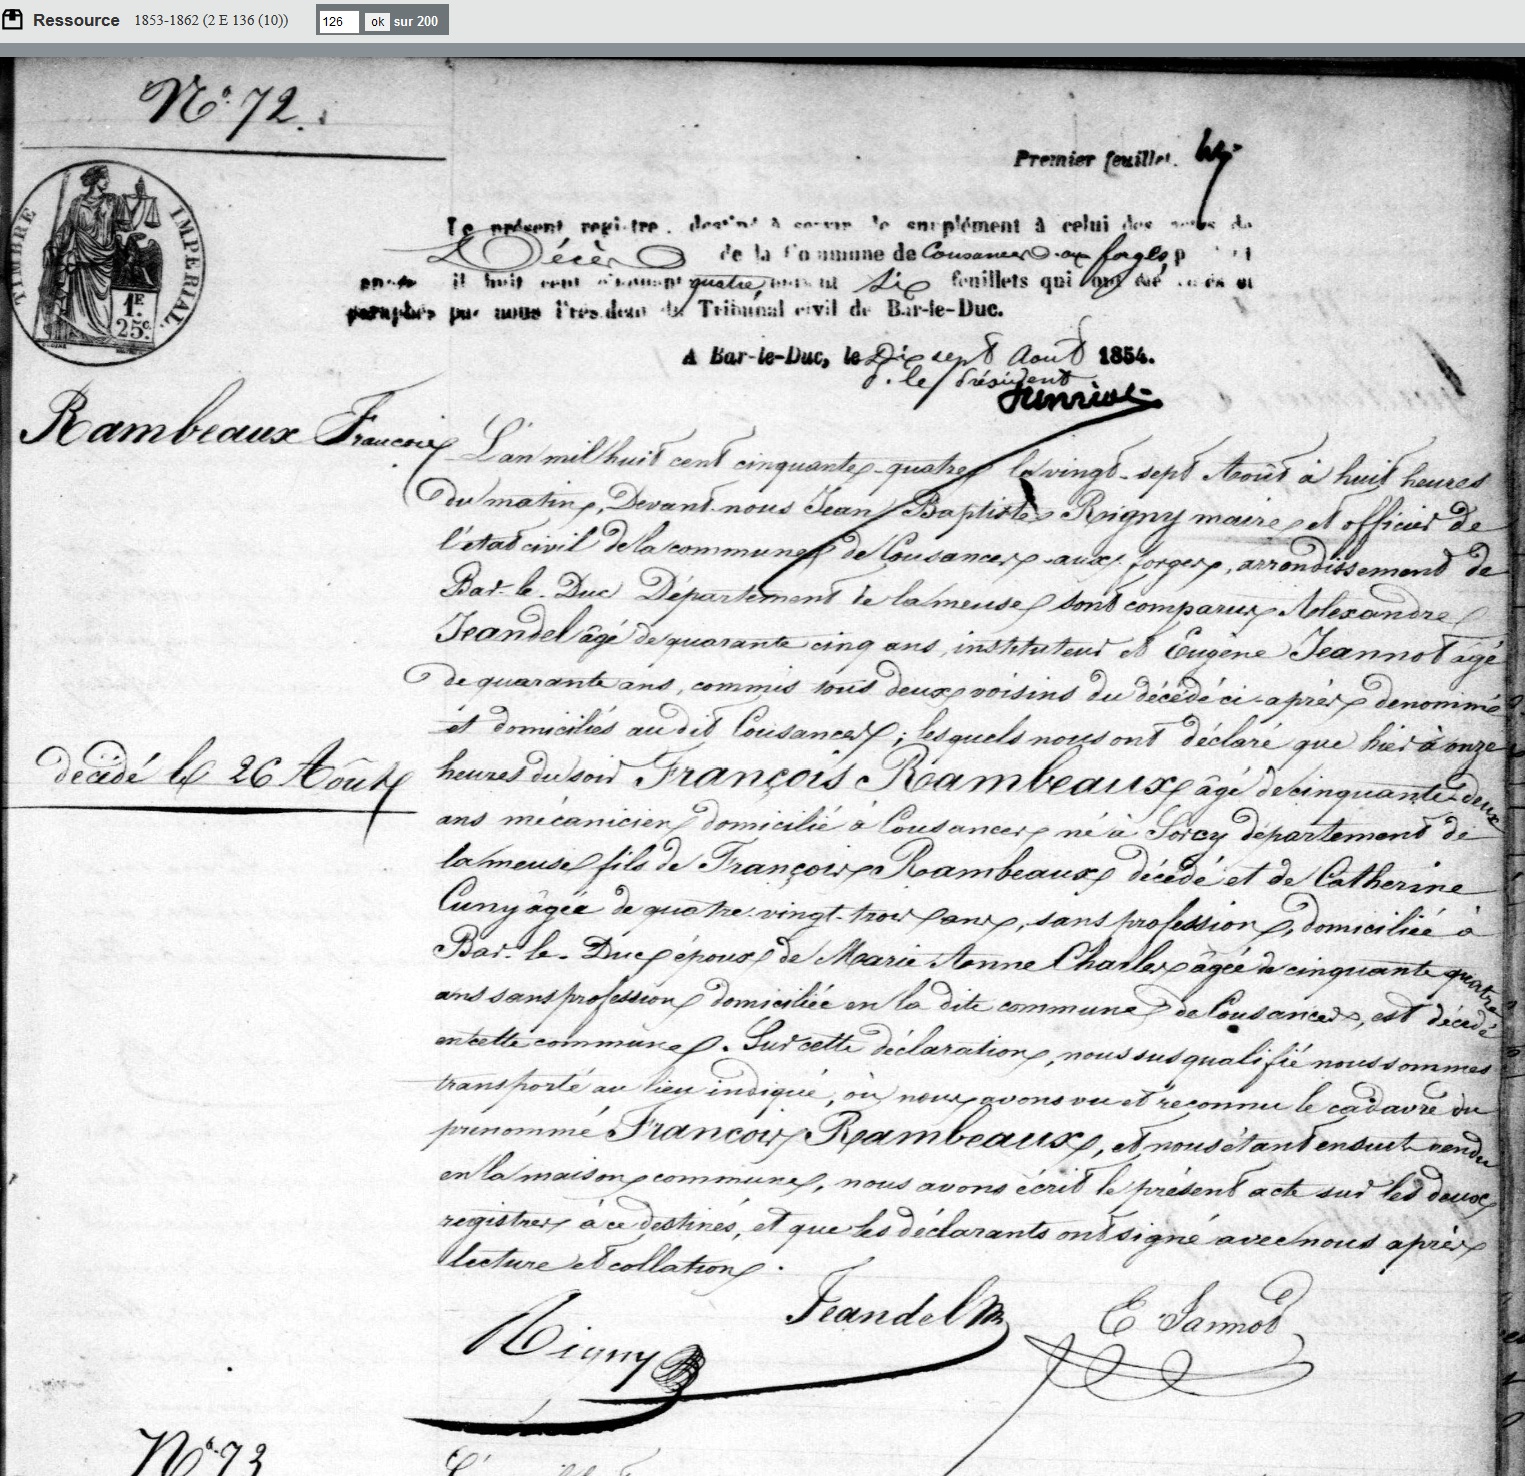 Ressource 1853-1862 (2 E 136 (10)) 126 ok sur 200
N° 72.
Premier feuillet.
TIMBRE IMPERIAL
1F 25c
Le présent registre, destiné à servir de supplément à celui des actes de
Décès de la Commune de Cousances aux forges
mil huit cent cinquante quatre, contenant Six feuillets qui ont été cotés et
paraphés par nous Président du Tribunal civil de Bar-le-Duc.
A Bar-le-Duc, le Dix sept Août 1854.
P. le Président
Henriot
Rambeaux François
L'an mil huit cent cinquante-quatre le vingt-sept Août à huit heures
du matin, Devant nous Jean Baptiste Rigny maire et officier de
l'état civil de la commune de Cousances-aux-forges, arrondissement de
Bar-le-Duc Département de la meuse sont comparus Alexandre
Jeandel âgé de quarante cinq ans, instituteur et Eugène Jeannot âgé
de quarante ans, commis tous deux voisins du décédé ci-après denommé
et domiciliés au dit Cousances ; lesquels nous ont déclaré que hier à onze
décédé le 26 Août
heures du soir François Rambeaux âgé de cinquante-deux
ans mécanicien domicilié à Cousances né à Sorcy département de
la meuse fils de François Rambeaux décédé et de Catherine
Cuny âgée de quatre-vingt-trois ans, sans profession, domiciliée à
Bar-le-Duc époux de Marie Anne Charles âgée de cinquante quatre
ans sans profession domiciliée en la dite commune de Cousances, est décédé
en cette commune. Sur cette déclaration, nous susqualifié nous sommes
transporté au lieu indiqué, où nous avons vu et reconnu le cadavre du
prénommé François Rambeaux, et nous étant ensuite rendu
en la maison commune, nous avons écrit le présent acte sur les deux
registres à ce destinés, et que les déclarants ont signé avec nous après
lecture et collation.
Rigny Jeandel E Jannot
N° 73